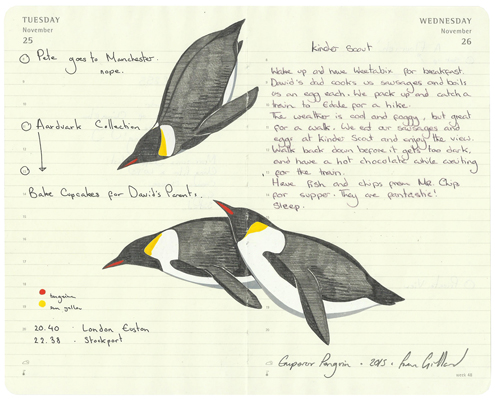 TUESDAY
November
25
Pete goes to Manchester.
nope.
Aardvark Collection
Bake Cupcakes for David's Parents.
tangerine
sun yellow
20.40 · London Euston
22.38 · Stockport
WEDNESDAY
November
26
Kinder Scout
Wake up and have Weetabix for breakfast.
David's dad cooks us sausages and boils
us an egg each. We pack up and catch a
train to Edale for a hike.
The weather is cool and foggy, but great
for a walk. We eat our sausages and
eggs at Kinder Scout and enjoy the view.
Walk back down before it gets too dark,
and have a hot chocolate while waiting
for the train.
Have fish and chips from Mr. Chips
for supper. They are fantastic!
Sleep.
Emperor Penguin · 2015 ·
week 48